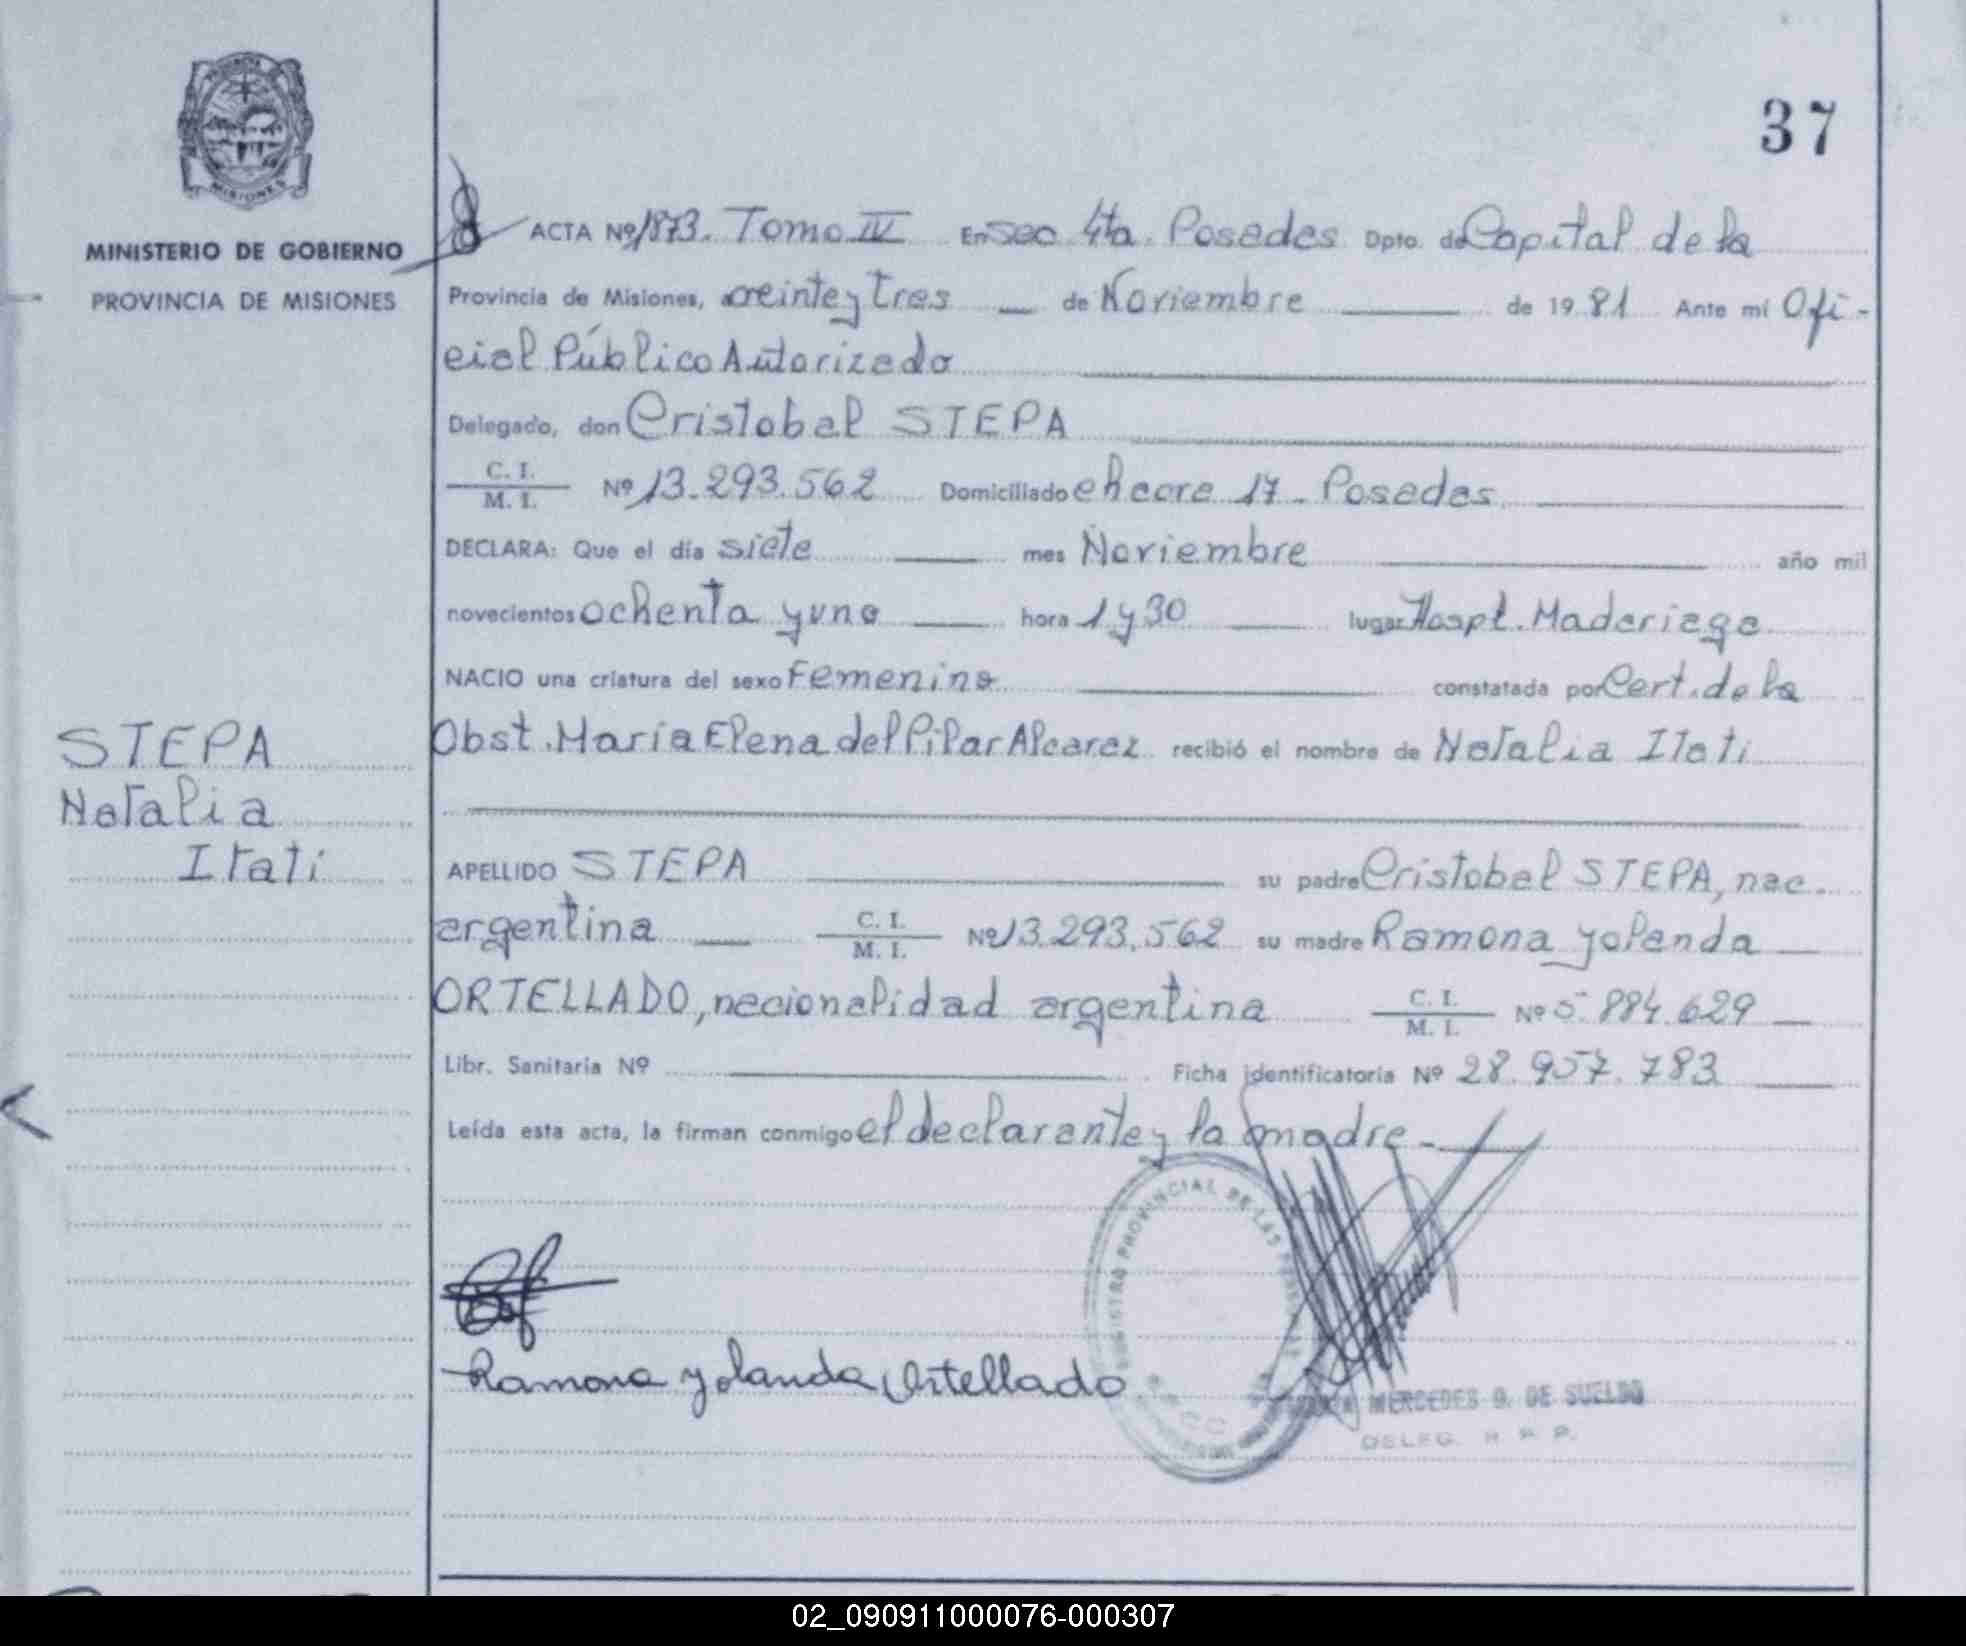 37
PROVINCIA DE
MISIONES
MINISTERIO DE GOBIERNO
PROVINCIA DE MISIONES
STEPA
Natalia
Itati
ACTA Nº 1873. Tomo IV En Sec 4ta. Posadas Dpto. de Capital de la
Provincia de Misiones, a veinte y tres de Noviembre de 1981 Ante mí Ofi-
cial Público Autorizado
Delegado, don Cristobal STEPA
C. I.
M. I. Nº 13.293.562 Domiciliado chacra 17 - Posadas
DECLARA: Que el día siete mes Noviembre año mil
novecientos ochenta y uno hora 1 y 30 lugar Hospt. Madariaga
NACIO una criatura del sexo Femenino constatada por Cert. de la
Obst. María Elena del Pilar Alcaraz recibió el nombre de Natalia Itati
APELLIDO STEPA su padre Cristobal STEPA, nac.
argentina C. I. M. I. Nº 13.293.562 su madre Ramona Yolanda
ORTELLADO, nacionalidad argentina C. I. M. I. Nº 5.884.629
Libr. Sanitaria Nº Ficha identificatoria Nº 28.957.783
Leída esta acta, la firman conmigo el declarante y la madre.-
REGISTRO PROVINCIAL DE LAS
Ramona Yolanda Ortellado
MERCEDES G. DE SUELDO
DELEG. R. P. P.
02_090911000076-000307